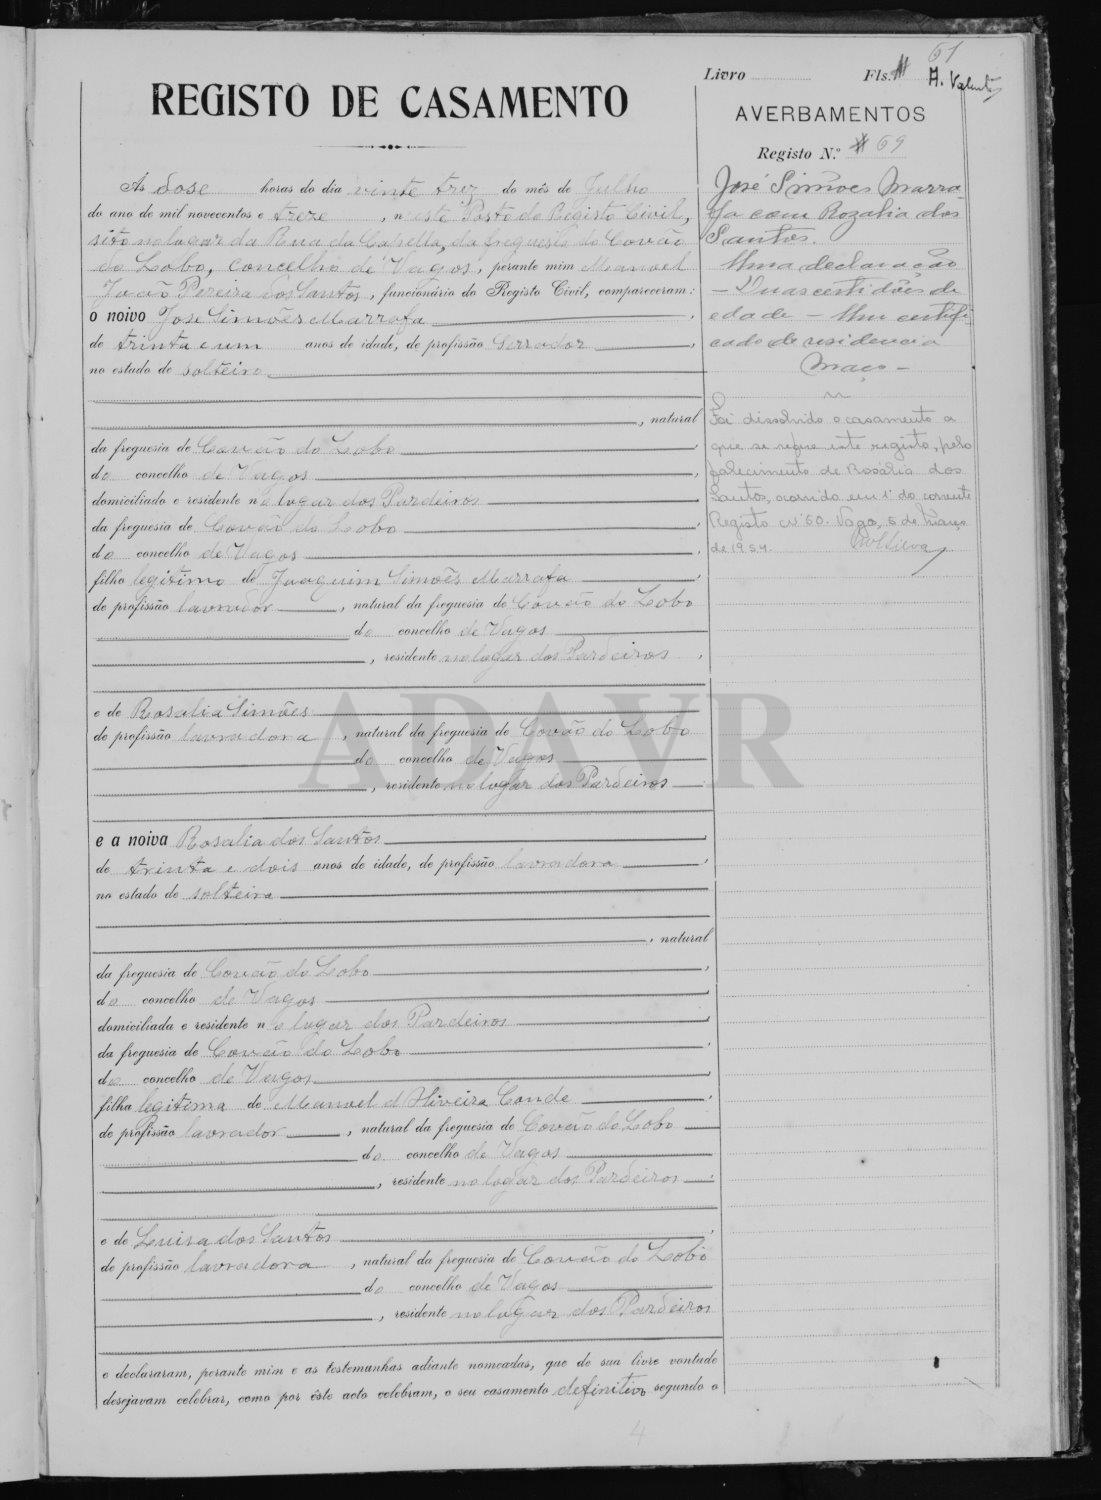 61
Livro Fls.
A. Valente
REGISTO DE CASAMENTO
As dose horas do dia vinte trez do mês de Julho
do ano de mil novecentos e treze, neste Posto do Registo Civil,
sito no logar da Rua da Capella, da freguesia do Covão
do Lobo, concelho de Vagos, perante mim Manoel
João Pereira dos Santos, funcionário do Registo Civil, compareceram:
o noivo José Simões Marrafa,
de trinta e um anos de idade, de profissão Serrador,
no estado de solteiro
, natural
da freguesia de Covão do Lobo,
do concelho de Vagos,
domiciliado e residente no lugar dos Pardeiros
da freguesia de Covão do Lobo,
do concelho de Vagos,
filho legitimo de Joaquim Simões Marrafa,
de profissão lavrador, natural da freguesia de Covão do Lobo
do concelho de Vagos
, residente no logar dos Pardeiros,
e de Rosalia Simões
de profissão lavradora, natural da freguesia de Covão do Lobo
do concelho de Vagos
, residente no logar dos Pardeiros;
e a noiva Rosalia dos Santos,
de trinta e dois anos de idade, de profissão lavradora,
no estado de solteira
, natural
da freguesia de Covão do Lobo,
do concelho de Vagos,
domiciliada e residente no lugar dos Pardeiros,
da freguesia de Covão do Lobo,
do concelho de Vagos,
filha legitima de Manoel d'Oliveira Conde,
de profissão lavrador, natural da freguesia de Covão do Lobo
do concelho de Vagos
, residente no logar dos Pardeiros;
e de Luisa dos Santos,
de profissão lavradora, natural da freguesia de Covão do Lobo
do concelho de Vagos
, residente no logar dos Pardeiros
e declararam, perante mim e as testemunhas adiante nomeadas, que de sua livre vontade
desejavam celebrar, como por êste acto celebram, o seu casamento definitivo segundo o
4
AVERBAMENTOS
Registo N.º 69
José Simões Marra-
fa com Rozalia dos
Santos.
Uma declaração
- Duas certidões de
edade - Um certifi-
cado de residencia
Maço -
Foi dissolvido o casamento a
que se refere este registo, pelo
falecimento de Rosália dos
Santos, ocorrido em 1 do corrente
Registo nº 60. Vagos, 5 de Março
de 1954.
ADAVR